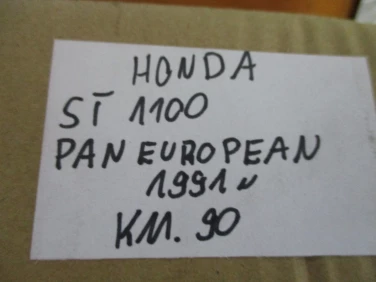 HONDA
ST 1100
PAN EUROPEAN
1991
KM. 90